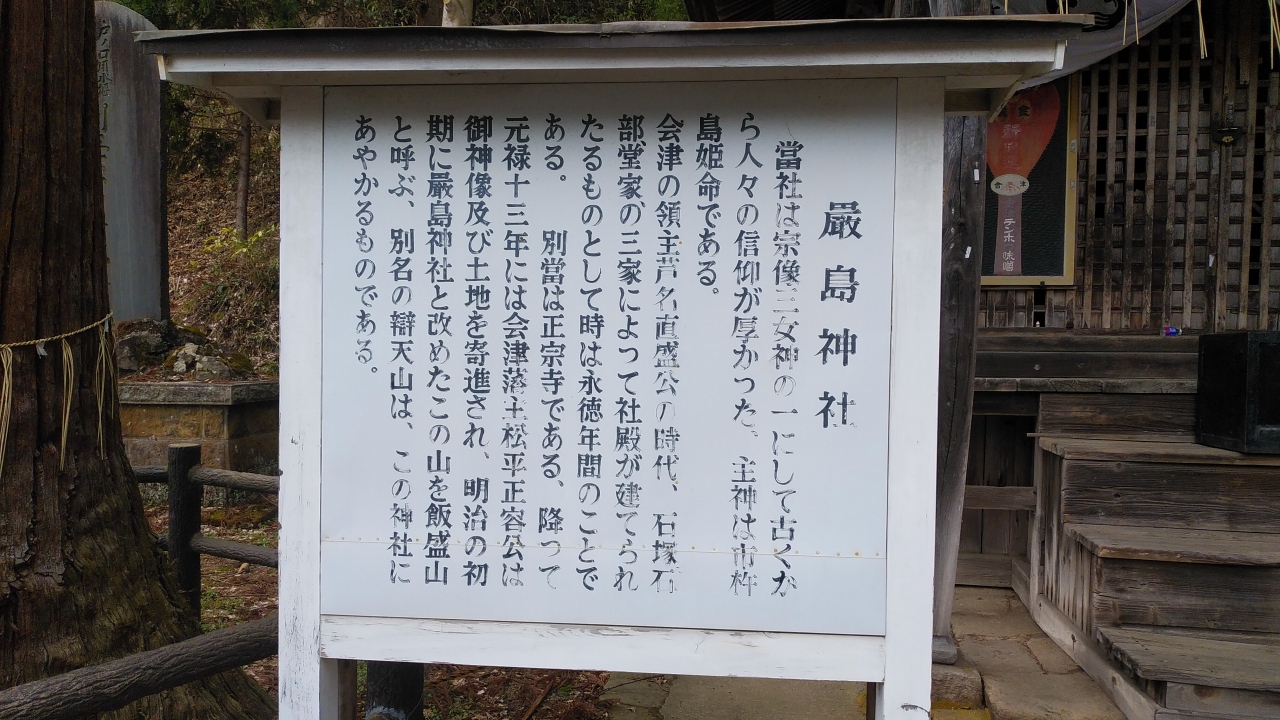 嚴島神社
當社は宗像三女神の一にして古くか
ら人々の信仰が厚かった、主神は市杵
島姫命である。
会津の領主芦名直盛公の時代、石塚石
部堂家の三家によって社殿が建てられ
たるものとして時は永徳年間のことで
ある。別當は正宗寺である、降って
元禄十三年には会津藩主松平正容公は
御神像及び土地を寄進され、明治の初
期に嚴島神社と改めたこの山を飯盛山
と呼ぶ、別名の辯天山は、この神社に
あやかるものである。
テンホー味噌